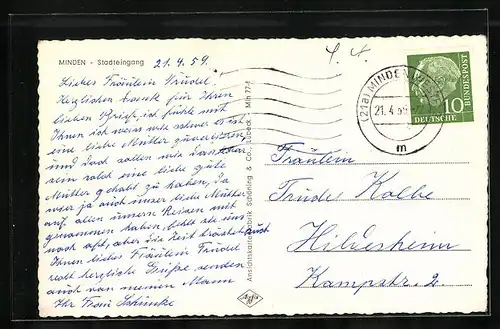 MINDEN - Stadteingang
21.4.59.
Liebes Fräulein Trudel
Herzlichen dank für Ihren
lieben Brief, ich fühle mit
Ihnen ich weis wie schwer es ist
eine liebe Mutter zu verlieren,
und doch sollen wir dankbar
sein solch eine liebe gute
Mutter gehabt zu haben, da
wir ja auch unser liebe Mutter
auf allen unsern Reisen mit
genommen haben, fehlt sie uns
noch oft, aber die Zeit tröstet auch
Ihnen liebes Fräulein Trudel
recht herzliche Grüße senden
auch von meinen Mann
Ihr Frau
Ansichtskartenfabrik Schöning & Co., Lübeck - Min 774
(21a) MINDEN (WESTF)
21.4.59
m
10
DEUTSCHE
BUNDESPOST
Fräulein
Trudel Kolbe
Hildesheim
Kampstr. 2